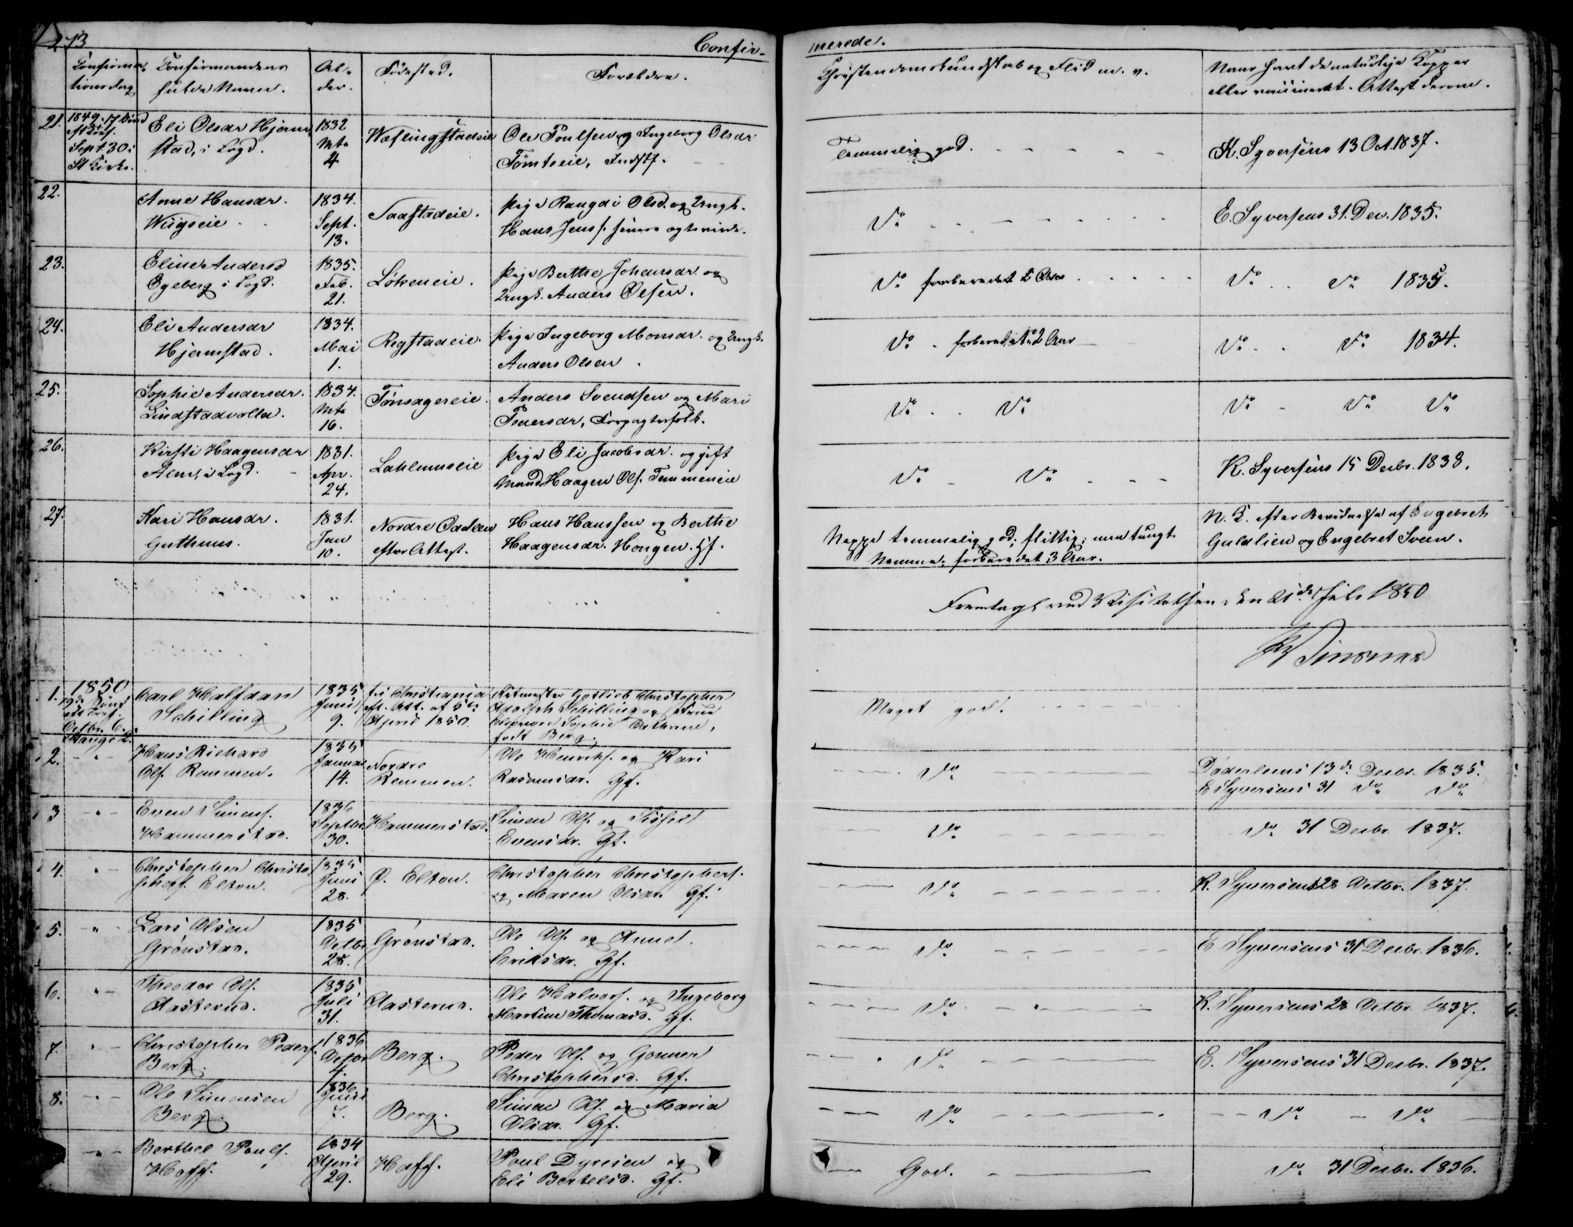 273
Confir-
merede.
Confirma-
tionsdag
Confirmandens
fulde Navn.
Al-
der.
Fødested.
Forældre.
Christendomskundskab og Flid m. v.
Naar havt de naturlige Kopper
eller vaccineret. Attest derom.
21.
1849. 17 Sønd
Sept 30 i
St Kirke.
Eli Olsdr Hjerm
stad, i Logd.
1832
Mts
4
Ole Poulsen og Ingeborg Olsdr
Tomteie, Indstf.
Temmelig god.
K. Syversens 13 Oct. 1837.
22.
Anne Hansdr.
Wiigseie
1834.
Sept.
13.
Saastadeie.
Pige Rangdi Olsd. og Ungk.
E. Syversens 31. Dec. 1835.
Hans Jenss. senere ægtevirde.
Do
23.
Eline Andersd
Egeberg i Logd.
1835.
Feb.
21.
Løkeneie.
Pige Berthe Johansdr og
Ungk. Anders Olsen.
Do forberedet 2 Aar
Do Do 1835.
24.
Eli Andersdr
Hjermstad.
1834.
Mai
1.
Regstadeie.
Pige Ingeborg Monsdr. og Ungk.
Anders Olsen
Do forberedet 2 Aar
Do Do 1834.
25.
Sophie Andersdr.
Lindstadvolla.
1834.
Mts
16.
Tønsagereie.
Anders Svendsen og Mari
Do Do
Do Do Do
26.
Kirsti Haagensdr
Alm, i Logd.
1831.
Apr.
24.
Pige Eli Jacobsdr. og gift
Mand Haagen Ols. Tommeneie
Do Do
K. Syversens 15 Decbr. 1838.
27.
Kari Hansdr.
Guthuus.
1831.
Jan
10.
Nordre Odalen
efter Attest.
Hans Hanssen og Berthe
Haagensdr. Hongen. Gf.
Neppe temmelig god; flittig; men tungt
Nemme, forberedet 3 Aar.
N. K. efter Bevidnelse af Engebret
Gulalien og Engebret Sveen.
Fremlagt ved Visitatsen den 21de Juli 1850
1.
1850
Carl Halfdan
Schilling
1835
Juni
9.
fra Christiania
eft. Att. af 5te
April 1850.
Ritmester Gotlieb Christopher
Adolph Schilling og Frue
født Berg.
Meget god.
2.
Hans Richard
Ols. Remmen.
1835
Januar
14.
Nordre
Remmen.
Ole Henriks. og Kari
Rasmusdr. Gf.
Do
Døderleins 13de Decbr. 1835.
E Syversens 31 Do Do
3
Even Simens.
Hammerstad.
1836
Septbr
30.
Hammerstad.
Simen Ols. og Kristi
Evensdr. Gf.
Do
Do 31 Decbr. 1837.
4.
Christopher Christo
phers. Elton.
1835
Juni
28.
Ø. Elton.
Christopher Christophers.
og Maren Olsdr. Gf.
Do
K. Syversens 28 Octbr. 1837.
5.
Lars Olsen
Grønstad.
1835
Octbr
28.
Grønstad.
Ole Ols. og Anne
Eriksdr. Gf.
Do
E. Syversens 31 Decbr. 1836.
6.
Theodor Ols.
Aasterud.
1835
Juli
31.
Aasterud.
Ole Halvors. og Ingeborg
Martine Thomasd. Gf.
Do
K. Syversens 28 Octbr. 1837.
7.
Christopher Peders.
Berg.
1836
4.
Berg.
Peder Ols. og Gonner
Christophersd. Gf.
Do
E. Syversens 31 Decbr. 1837.
8.
Ole Simensen
Berg
1836
Juni
Berg.
Simen Ols. og Maria
Olsdr. Gf.
Do
Do Do
Berthel Pouls.
Hoff.
1834
April
29.
Hoff.
Poul Dyresen og
Eli Bertelsd. Gf.
God.
Do 31 Decbr. 1836.